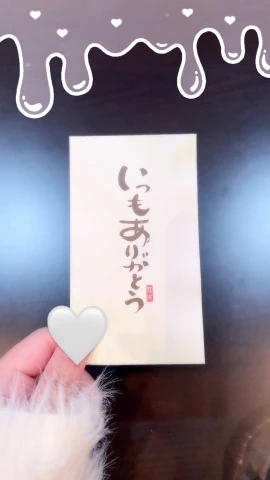 いつもありがとう